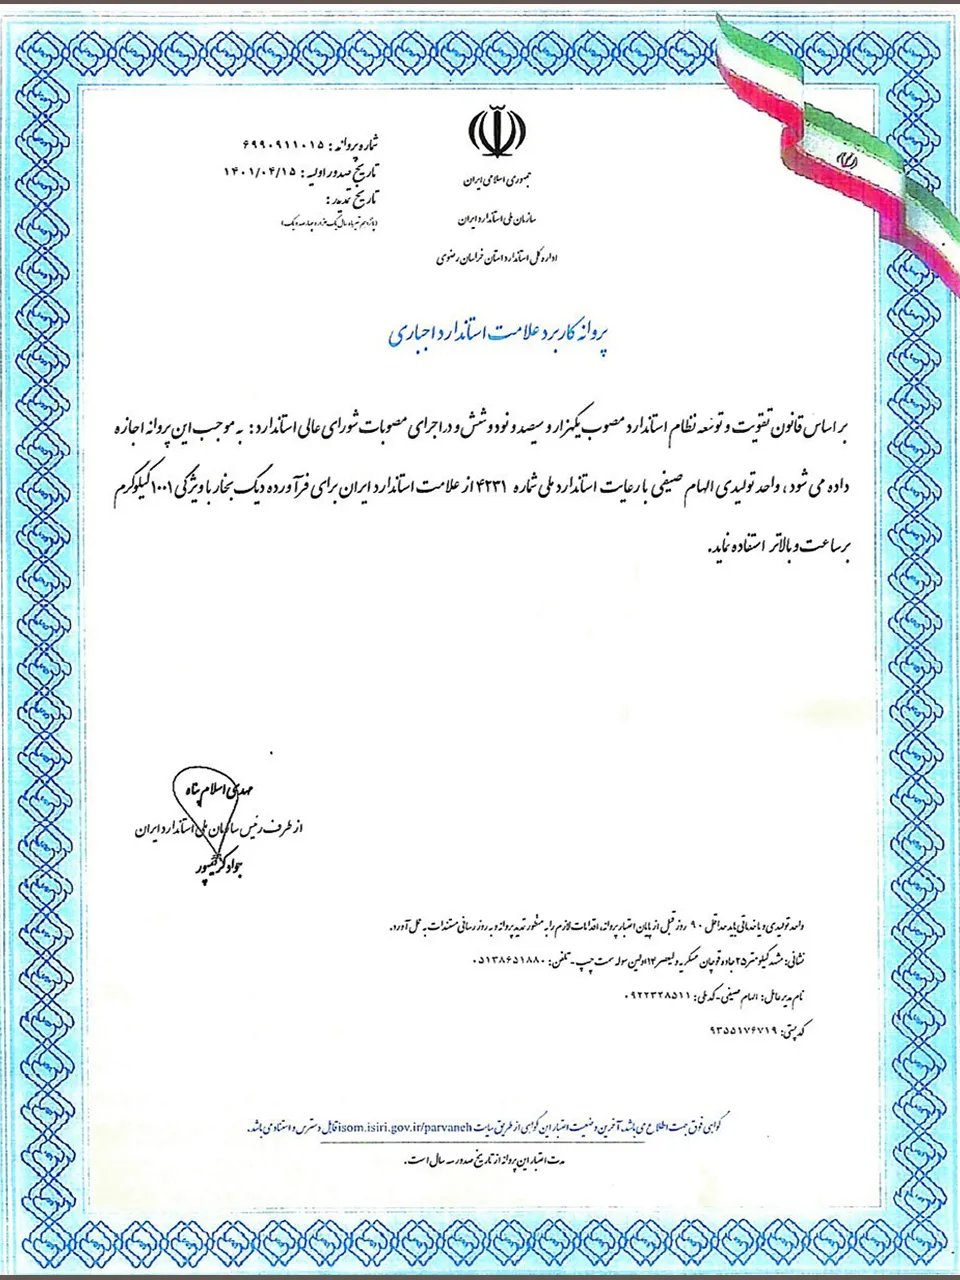 جمهوری اسلامی ایران
سازمان ملی استاندارد ایران
اداره کل استاندارد استان خراسان رضوی
شماره پروانه: ۶۹۹۰۹۱۱۰۱۵
تاریخ صدور اولیه: ۱۴۰۱/۰۴/۱۵
تاریخ تمدید:
(پانزدهم تیر ماه سال یک هزار و چهارصد و یک)
پروانه کاربرد علامت استاندارد اجباری
بر اساس قانون تقویت و توسعه نظام استاندارد مصوب یکهزار و سیصد و نود و شش و در اجرای مصوبات شورای عالی استاندارد: به موجب این پروانه اجازه
داده می شود، واحد تولیدی الهام صیفی با رعایت استاندارد ملی شماره ۴۲۳۱ از علامت استاندارد ایران برای فرآورده دیگ بخار با ویژگی ۱۰۰۱کیلوگرم
بر ساعت و بالاتر استفاده نماید.
مهدی اسلام پناه
از طرف رئیس سازمان ملی استاندارد ایران
جواد
واحد تولیدی و یا خدماتی باید حداقل ۹۰ روز قبل از پایان اعتبار پروانه، اقدامات لازم را به منظور تمدید پروانه و به روز رسانی مستندات به عمل آورد.
نشانی: مشهد کیلومتر ۲۵ جاده قوچان عسکریه ولیعصر ۱۴ اولین سوله سمت چپ - تلفن: ۰۵۱۳۸۶۵۱۸۸۰
نام مدیر عامل: الهام صیفی - کد ملی: ۰۹۲۲۳۲۸۵۱۱
کد پستی: ۹۳۵۵۱۷۶۷۱۹
گواهی فوق جهت اطلاع می باشد، آخرین وضعیت اعتبار این گواهی از طریق سایت isom.isiri.gov.ir/parvaneh قابل دسترس و استناد می باشد.
مدت اعتبار این پروانه از تاریخ صدور سه سال است.